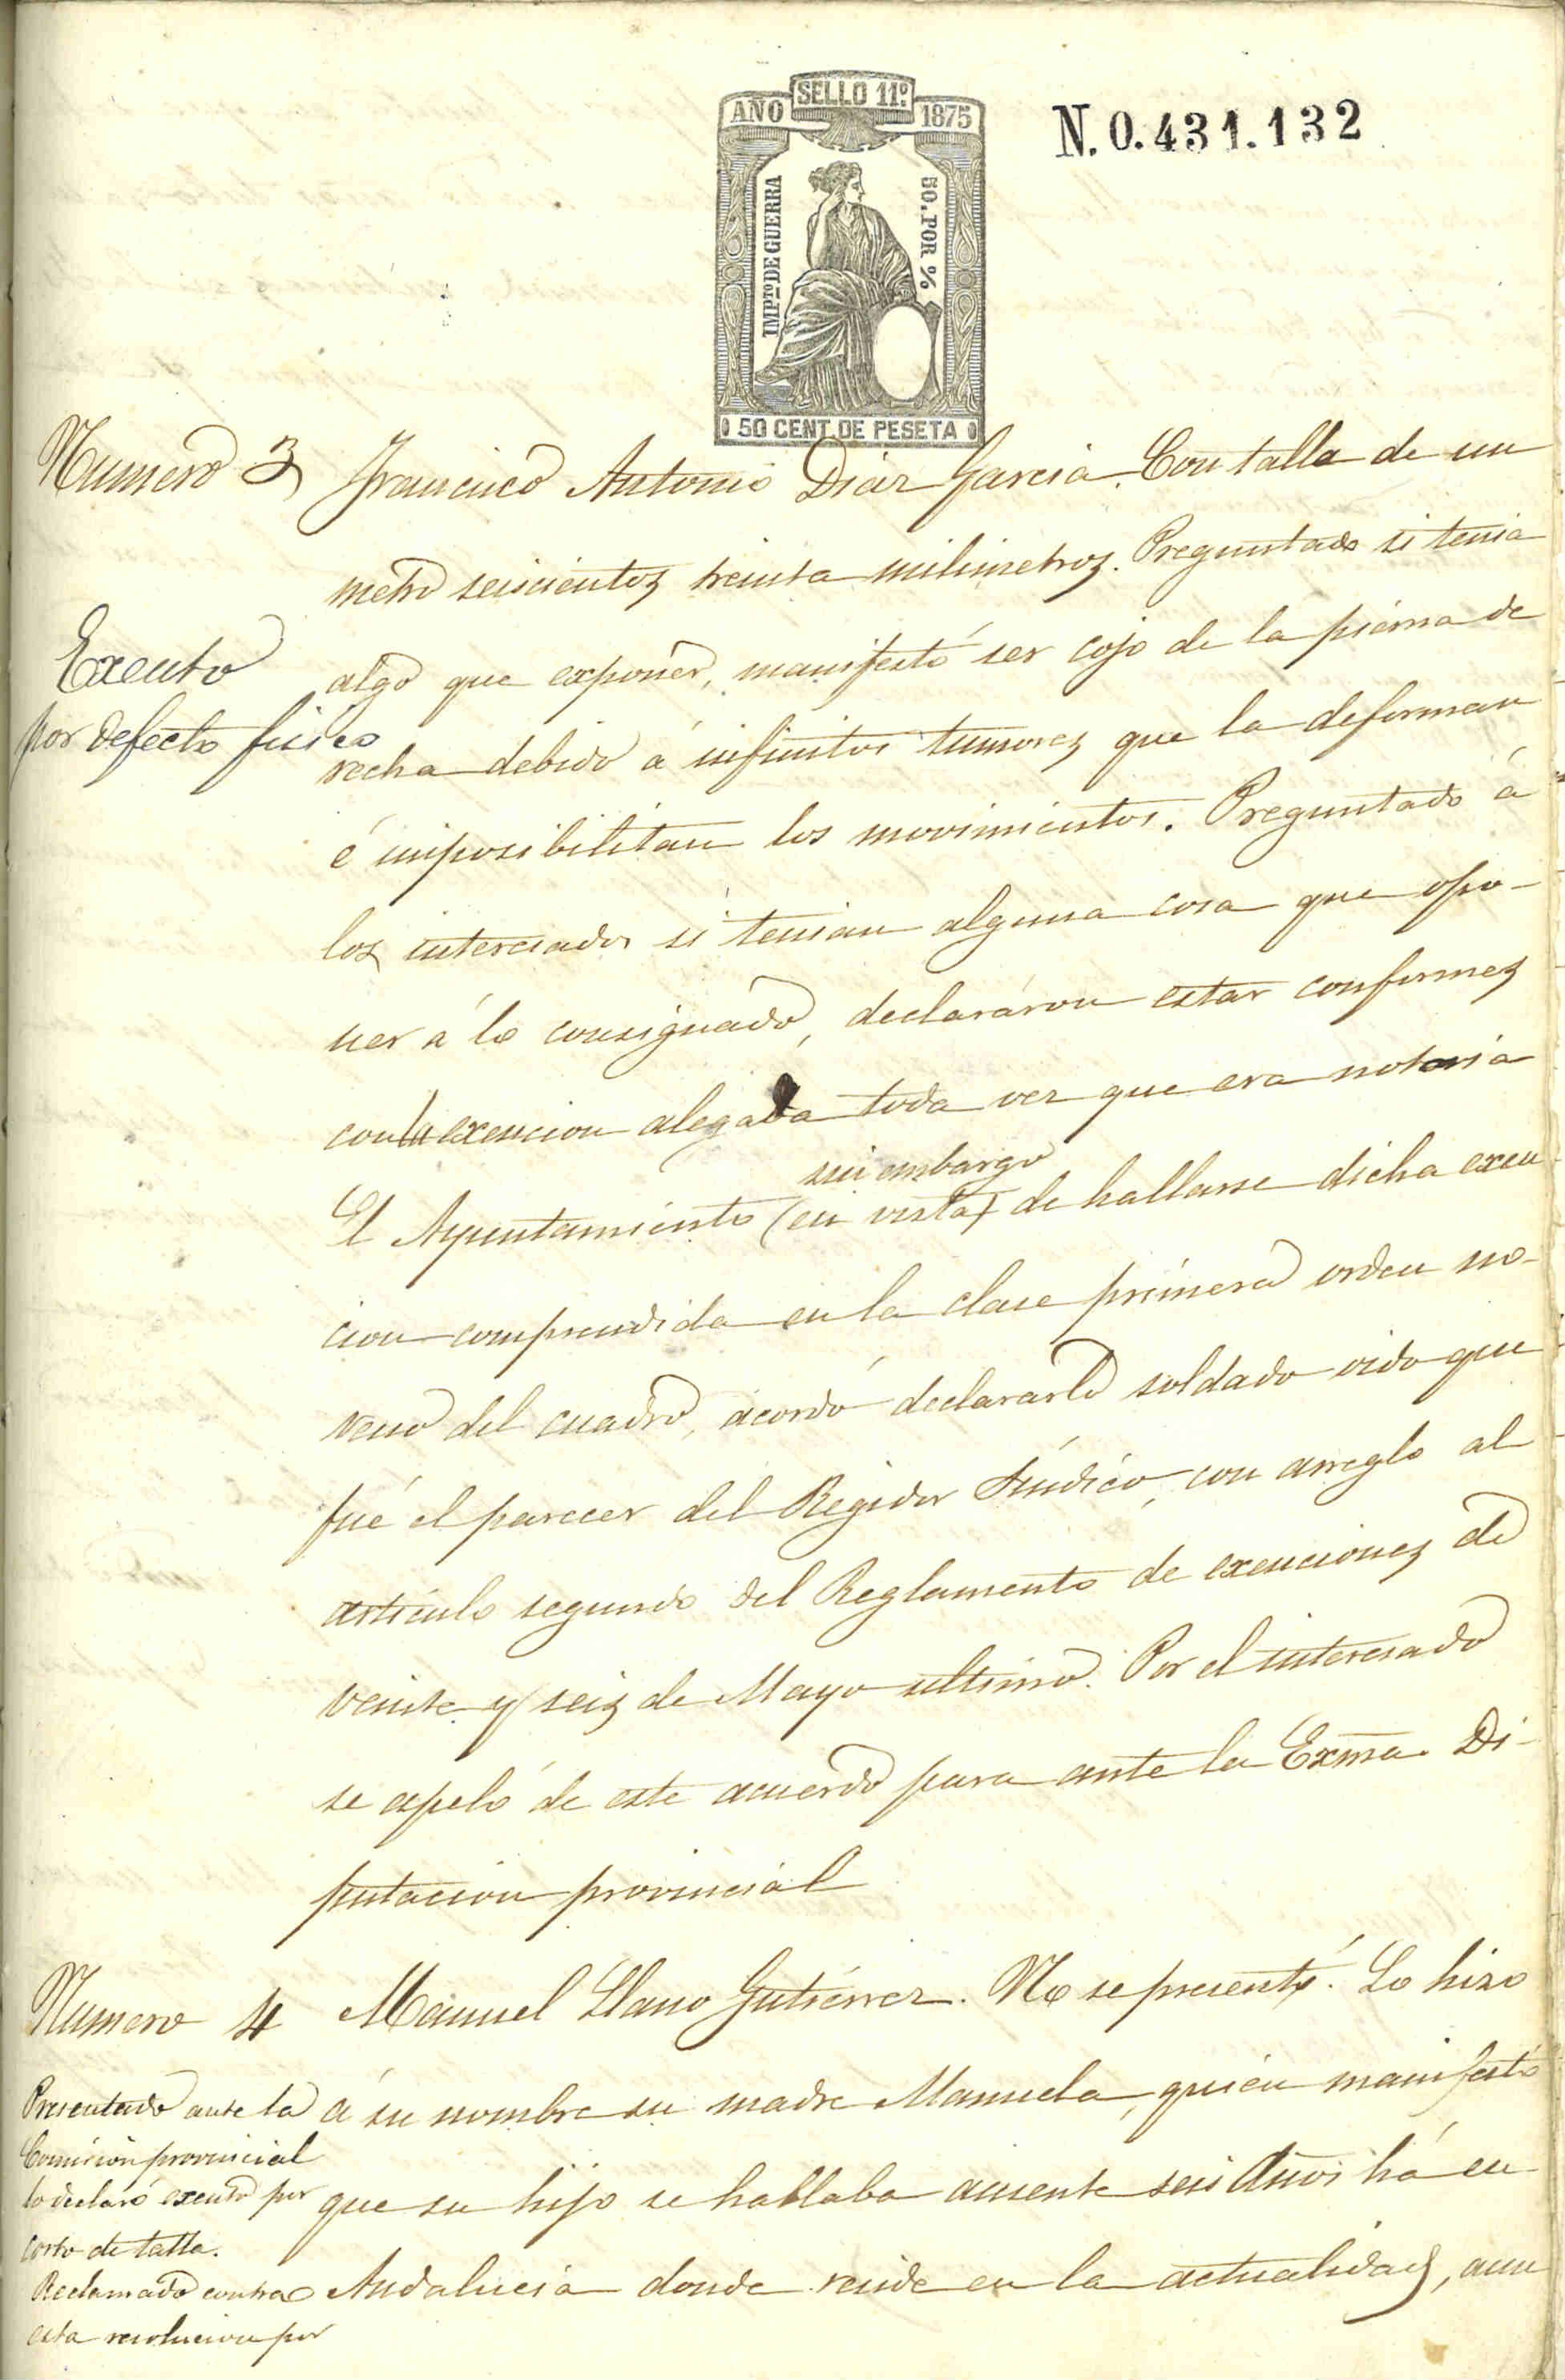 SELLO 11º
AÑO 1875
N. 0.431.132
IMPtoDE GUERRA
50. POR %
50 CENT. DE PESETA
Numero 3 Francisco Antonio Diaz Garcia. Con talla de un
metro seiscientos treinta milimetros. Preguntado si tenia
Exento
por defecto fisico
algo que exponer, manifestó ser cojo de la pierna de
recha debido á infinitos tumores que la deforman
é imposibilitan los movimientos. Preguntado á
los interesados si tenian alguna cosa que opo-
ner á lo consignado, declararon estar conformes
con la exencion alegada toda vez que era notoria
sin embargo
El Ayuntamiento (en vista) de hallarse dicha exen
cion comprendida en la clase primera orden no-
veno del cuadro, acordó declararlo soldado oido que
fué el parecer del Regidor Síndico, con arreglo al
artículo segundo del Reglamento de exenciones de
veinte y seis de Mayo ultimo. Por el interesado
se apeló de este acuerdo para ante la Exma. Di-
putacion provincial
Numero 4 Manuel Llano Gutierrez. No se presentó. Lo hizo
á su nombre su madre Manuela, quien manifestó
que su hijo se hallaba ausente seis Años há en
Andalucia donde reside en la actualidad, aun
Presentado ante la
Comision provincial
lo declaró exento por
corto de talla.
Reclamado contra
esta resolucion por